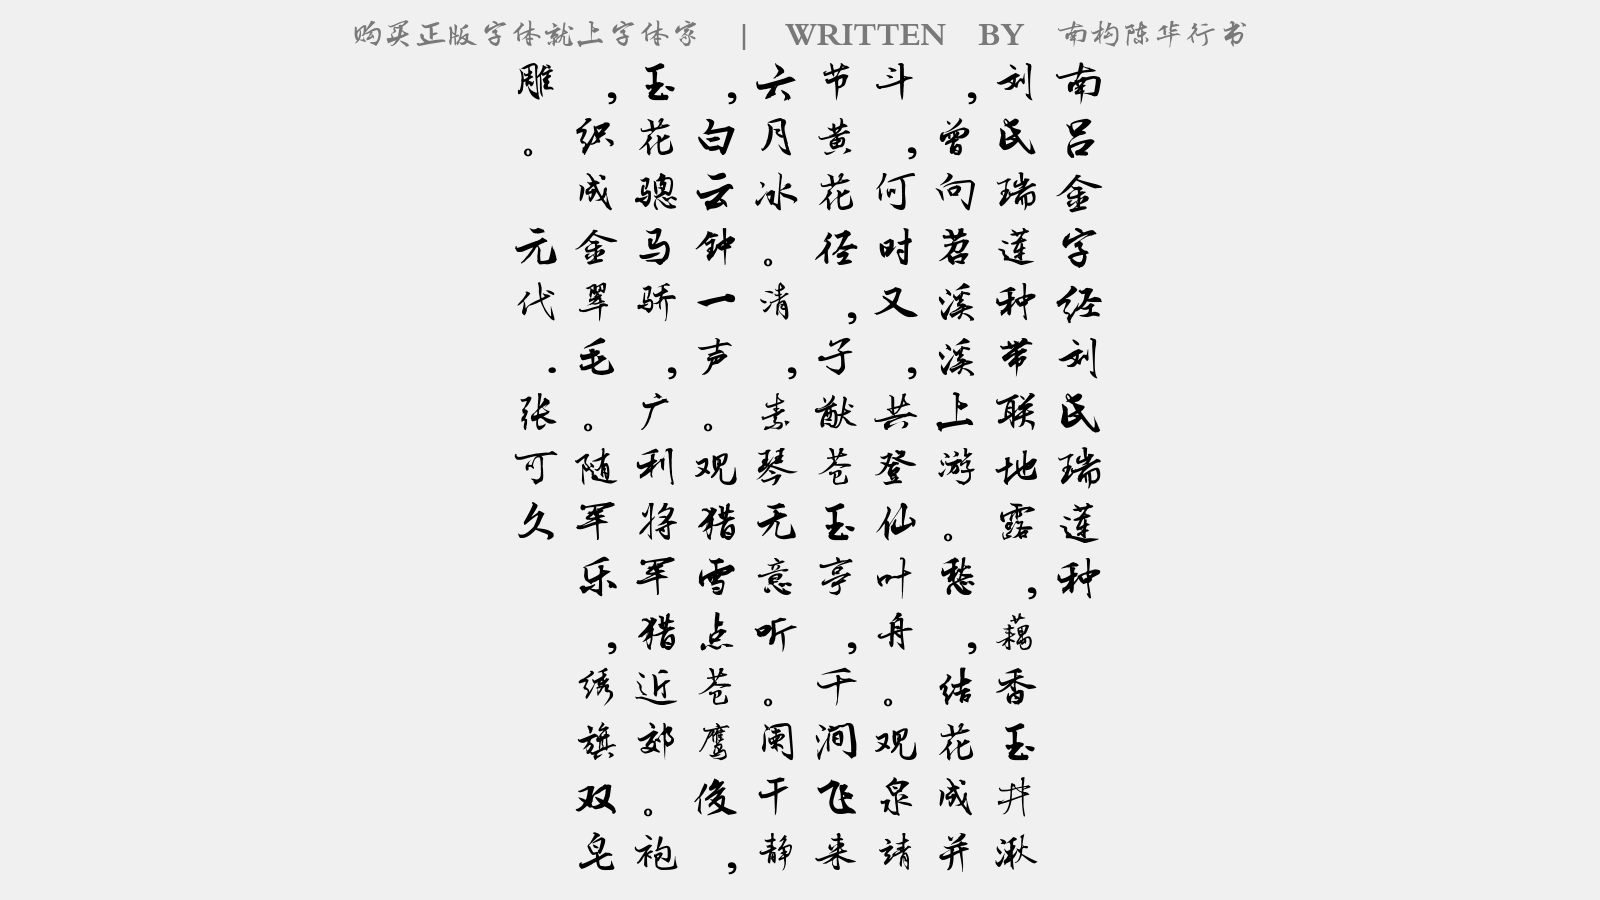 购买正版字体就上字体家 | WRITTEN BY 南构陈华行书
南吕金字经刘氏瑞莲种
刘氏瑞莲种带联地露，藕香玉井湫
，曾向苕溪溪上游。愁，结花成并
斗，何时又，共登仙叶舟。观泉靖
节黄花径，子猷苍玉亭，干涧飞来
六月冰。清，素琴无意听。阑干静
，白云钟一声。观猎雪点苍鹰俊，
玉花骢马骄，广利将军猎近郊。袍
，织成金翠毛。随军乐，绣旗双皂
雕。 元代.张可久